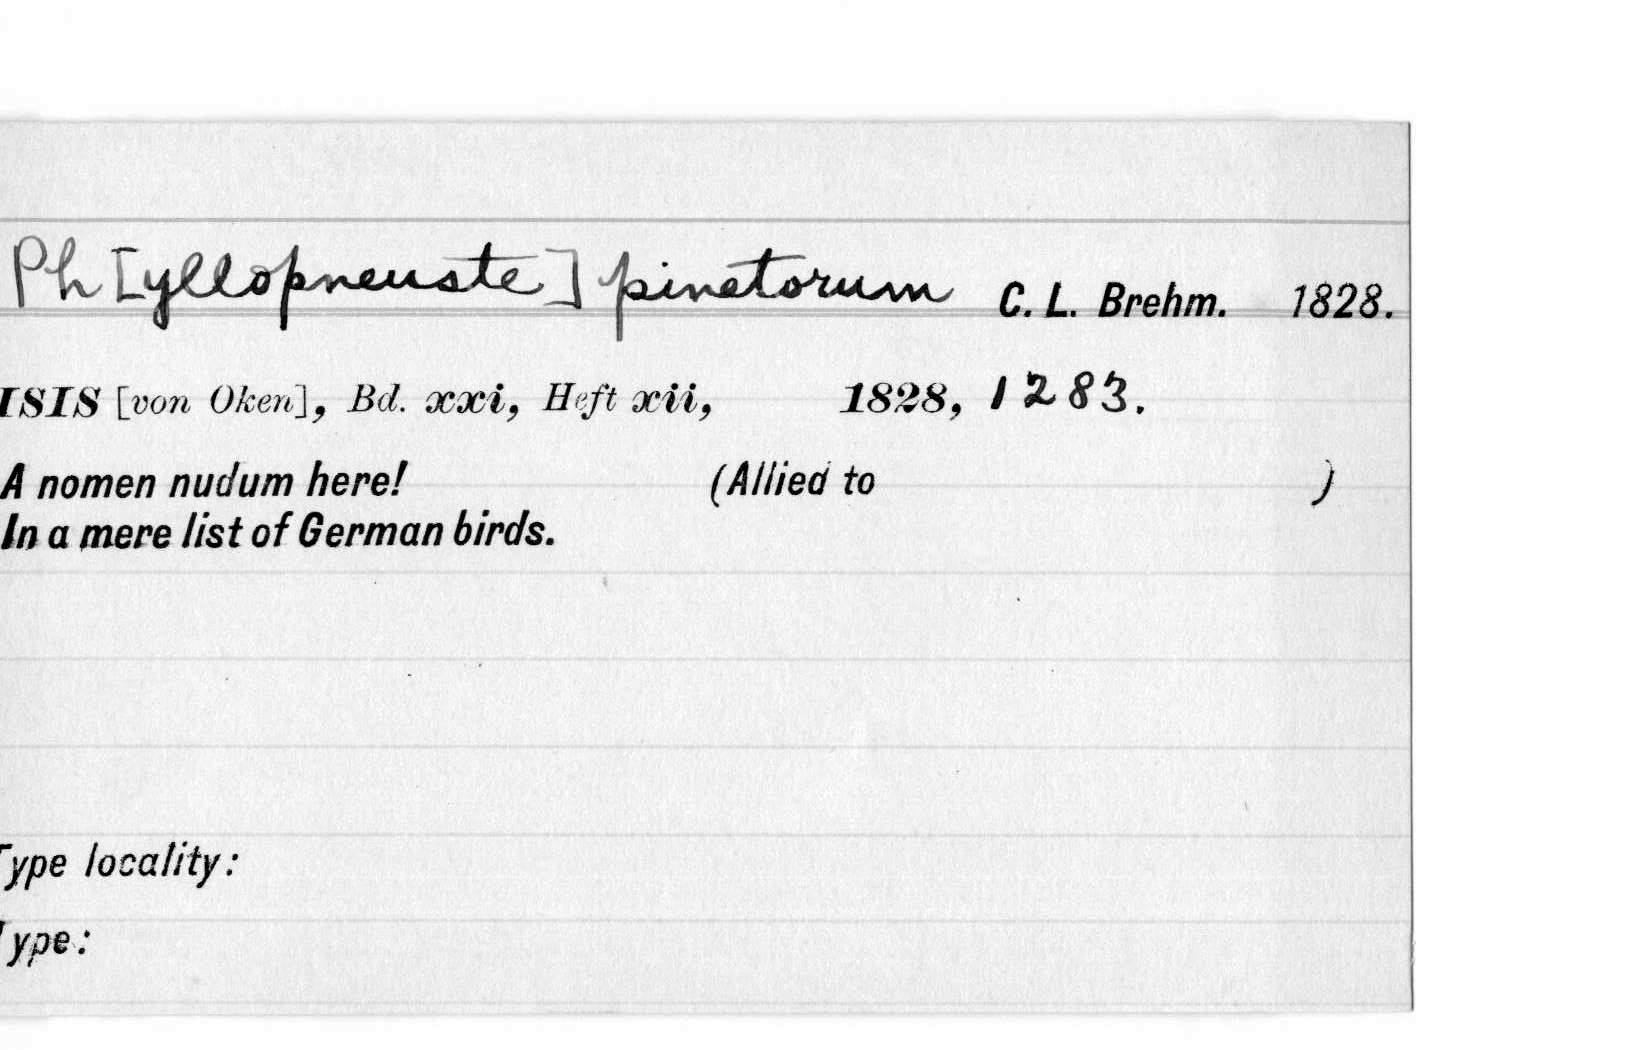 Ph[yllopneuste] pinetorum C. L. Brehm. 1828.
ISIS [von Oken], Bd. xxi, Heft xii, 1828, 1283.
A nomen nudum here! (Allied to )
In a mere list of German birds.
Type locality:
Type: